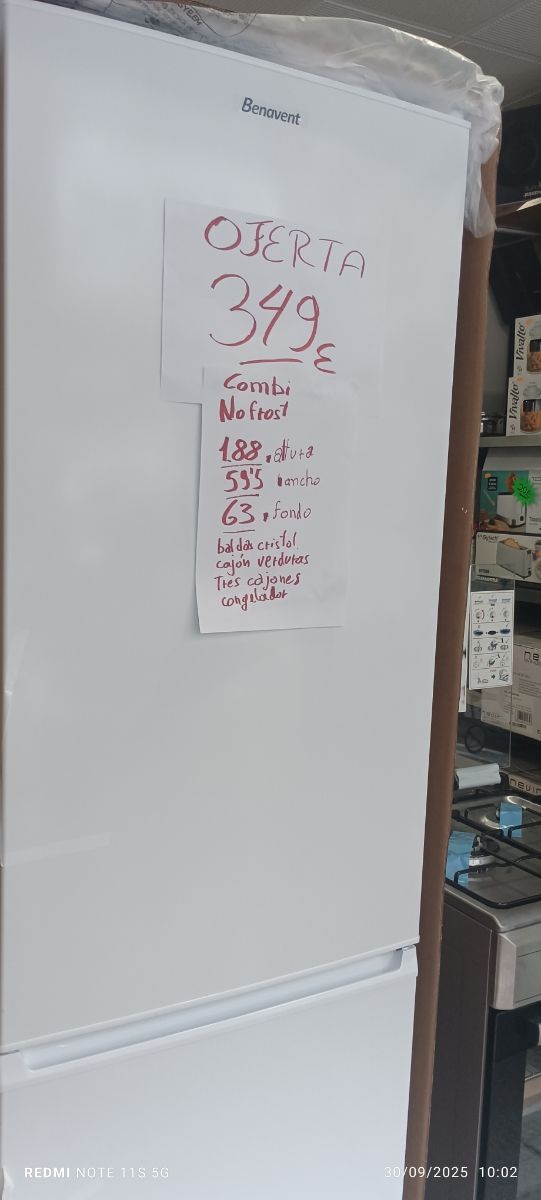 Benavent
OFERTA
349 €
Combi
No frost
188. altura
59'5 ancho
63. fondo
baldas cristal
cajón verduras
Tres cajones
congelador
Vivalto
Vivalto
REDMI NOTE 11S 5G
30/09/2025 10:02